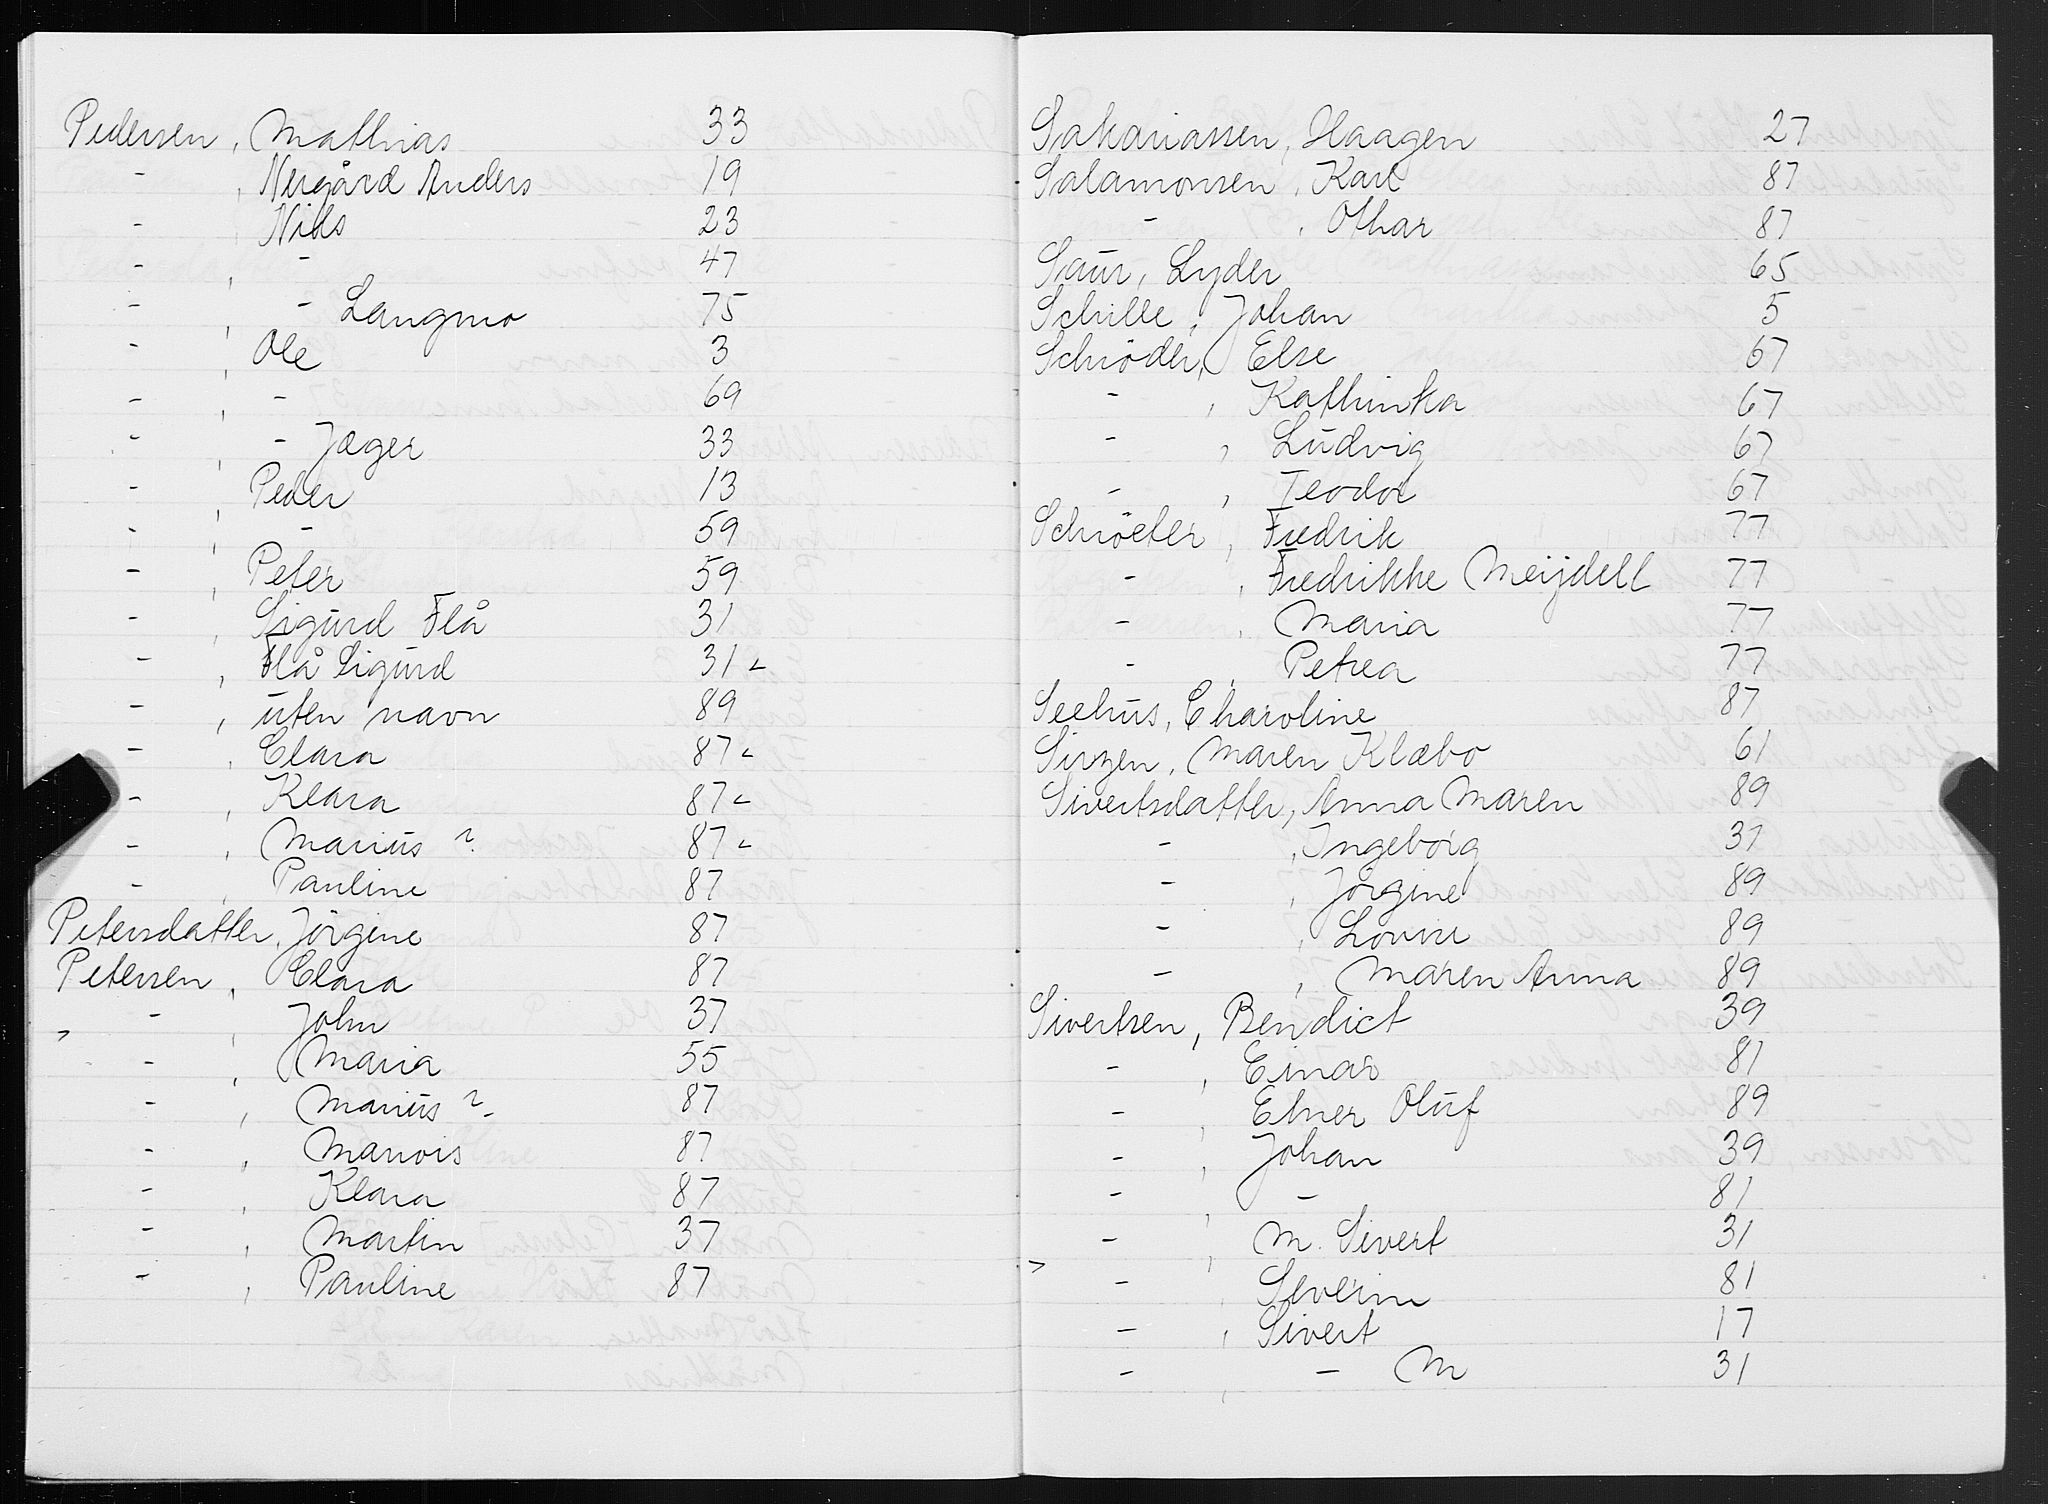 Pedersen, Mathias 33
- , Nergård Anders 19
- , Nils 23
- , - 47
- , - Langmo 75
- , Ole 3
- , - 69
- , - Jæger 33
- , Peder 13
- , - 59
- , Peter 59
- , Sigurd Flå 31
- , Flå Sigurd 31 -
- , uten navn 89
- , Clara 87 -
- , Klara 87 -
- , Marius ? 87 -
- , Pauline 87
Petersdatter, Jörgine 87
Petersen, Clara 87
- , John 37
- , Maria 55
- , Marius ?. 87
- , Marvois 87
- , Klara 87
- , Martin 37
- , Pauline 87
Sakariassen, Haagen 27
Salamonsen, Karl 87
- , Othar 87
Saur, Lyder 65
Schille, Johan 5
Schröder, Else 67
- , Kathinka 67
- , Ludvig 67
- , Teodor 67
Schröeter, Fredrik 77
- , Fredrikke Meijdell 77
- , Maria 77
- , Petrea 77
Seehus, Charoline 87
Sirzen, Maren Klæbo 61
Sivertsdatter, Anna Maren 89
- , Ingeborg 31
- , Jörgine 89
- , Lovise 89
- , Maren Anna 89
Sivertsen, Bendict 39
- , Einar 81
- , Elner Oluf 89
- , Johan 39
- , - 81
- , M. Sivert 31
- , Severin 81
- , Sivert 17
- , - M 31